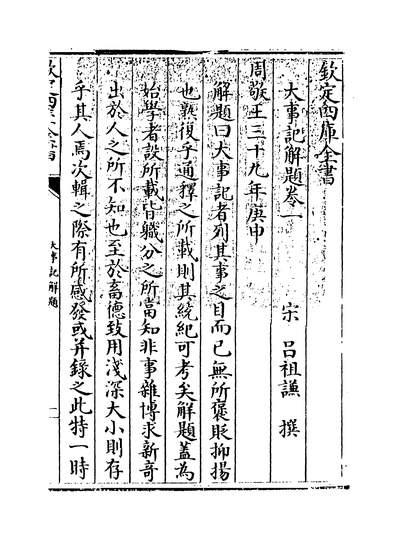 欽定四庫全書
大事記解題卷一
宋　呂祖謙　撰
周敬王三十九年庚申
解題曰大事記者列其事之目而已無所褒貶抑揚
也熟復乎通釋之所載則其統紀可考矣解題蓋為
始學者設所載皆職分之所當知非事雜博求新奇
出於人之所不知也至於畜德致用淺深大小則存
乎其人焉次輯之際有所感發或并錄之此特一時
大事記解題